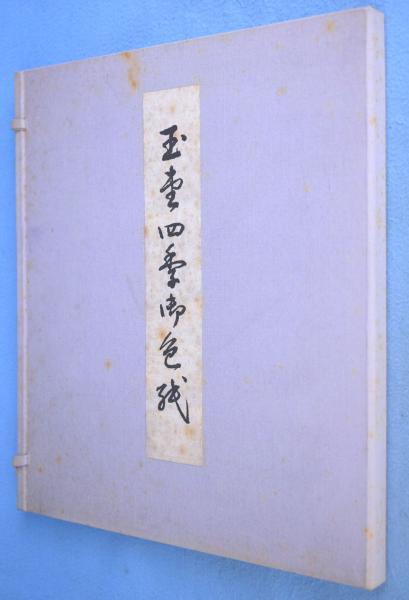 玉堂四季御色紙